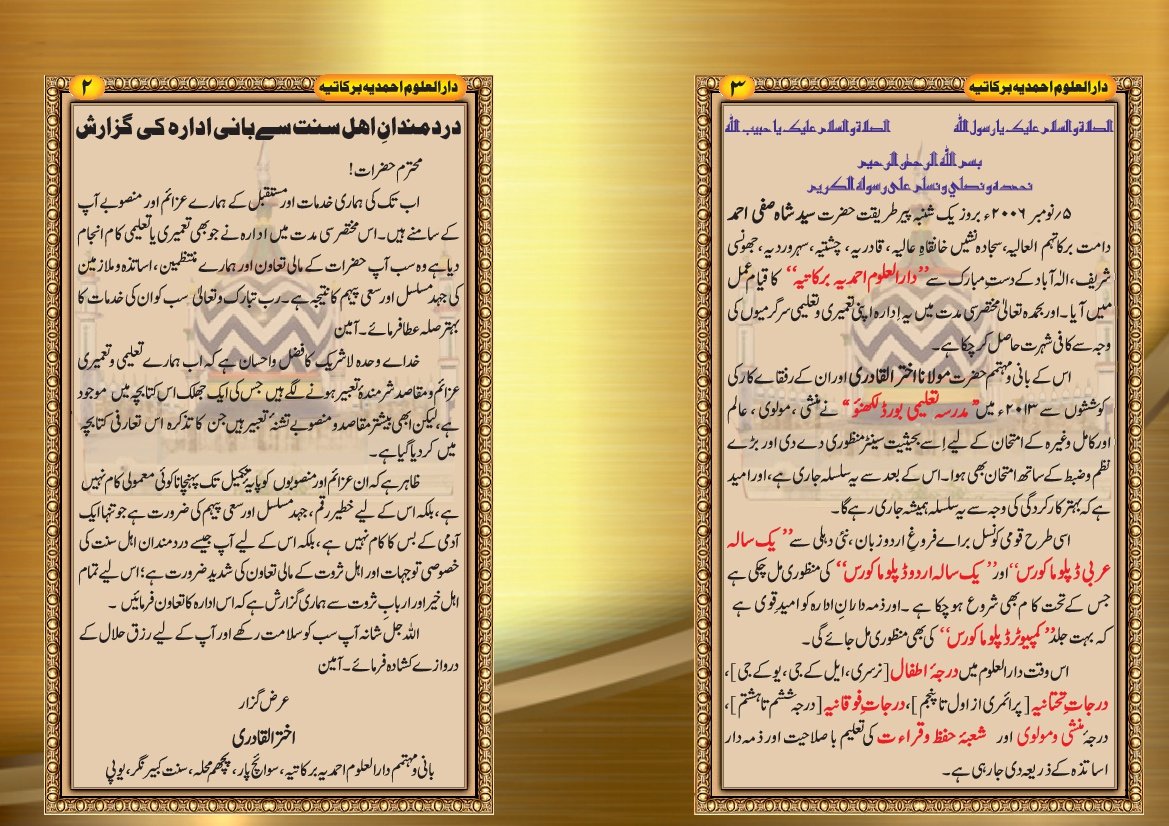 دارالعلوم احمدیہ برکاتیہ
۲
دردمندانِ اہل سنت سے بانی ادارہ کی گزارش
محترم حضرات!
اب تک کی ہماری خدمات اور مستقبل کے ہمارے عزائم اور منصوبے آپ
کے سامنے ہیں۔ اس مختصر سی مدت میں ادارہ نے جو بھی تعمیری یا تعلیمی کام انجام
دیا ہے وہ سب آپ حضرات کے مالی تعاون اور ہمارے منتظمین، اساتذہ و ملازمین
کی جہد مسلسل اور سعی پیہم کا نتیجہ ہے۔ رب تبارک وتعالیٰ سب کو ان کی خدمات کا
بہتر صلہ عطا فرمائے۔ آمین
خدائے وحدہ لاشریک کا فضل واحسان ہے کہ اب ہمارے تعلیمی و تعمیری
عزائم و مقاصد شرمندۂ تعبیر ہونے لگے ہیں جس کی ایک جھلک اس کتابچہ میں موجود
ہے، لیکن ابھی بیشتر مقاصد و منصوبے تشنۂ تعبیر ہیں جن کا تذکرہ اس تعارفی کتابچہ
میں کر دیا گیا ہے۔
ظاہر ہے کہ ان عزائم اور منصوبوں کو پایۂ تکمیل تک پہنچانا کوئی معمولی کام نہیں
ہے، بلکہ اس کے لیے خطیر رقم، جہد مسلسل اور سعی پیہم کی ضرورت ہے جو تنہا ایک
آدمی کے بس کا کام نہیں ہے، بلکہ اس کے لیے آپ جیسے دردمندان اہل سنت کی
خصوصی توجہات اور اہل ثروت کے مالی تعاون کی شدید ضرورت ہے؛ اس لیے تمام
اہل خیر اور اربابِ ثروت سے ہماری گزارش ہے کہ اس ادارہ کا تعاون فرمائیں۔
اللہ جل شانہ آپ سب کو سلامت رکھے اور آپ کے لیے رزق حلال کے
دروازے کشادہ فرمائے۔ آمین
عرض گزار
اختر القادری
بانی و مہتمم دارالعلوم احمدیہ برکاتیہ، سوانچ پار، پچھم محلہ، سنت کبیر نگر، یوپی
دارالعلوم احمدیہ برکاتیہ
۳
الصلاۃ والسلام علیک یا رسول اللہ الصلاۃ والسلام علیک یا حبیب اللہ
بسم اللہ الرحمٰن الرحیم
نحمدہ ونصلی ونسلم علی رسولہ الکریم
۵/نومبر ۲۰۰۶ء بروز یک شنبہ پیر طریقت حضرت سید شاہ صفی احمد
دامت برکاتہم العالیہ، سجادہ نشیں خانقاہ عالیہ، قادریہ، چشتیہ، سہروردیہ، جھونسی
شریف، الٰہ آباد کے دست مبارک سے ’’دارالعلوم احمدیہ برکاتیہ‘‘ کا قیام عمل
میں آیا۔ اور بحمدہ تعالیٰ مختصر سی مدت میں یہ ادارہ اپنی تعمیری و تعلیمی سرگرمیوں کی
وجہ سے کافی شہرت حاصل کر چکا ہے۔
اس کے بانی و مہتمم حضرت مولانا اختر القادری اور ان کے رفقاے کار کی
کوششوں سے ۲۰۱۳ء میں ’’مدرسہ تعلیمی بورڈ لکھنؤ‘‘ نے منشی، مولوی، عالم
اور کامل وغیرہ کے امتحان کے لیے اِسے بحیثیت سینٹر منظوری دے دی اور بڑے
نظم و ضبط کے ساتھ امتحان بھی ہوا۔ اس کے بعد سے یہ سلسلہ جاری ہے، اور امید
ہے کہ بہتر کارکردگی کی وجہ سے یہ سلسلہ ہمیشہ جاری رہے گا۔
اسی طرح قومی کونسل براے فروغِ اردو زبان، نئی دہلی سے ’’یک سالہ
عربی ڈپلوما کورس‘‘ اور ’’یک سالہ اردو ڈپلوما کورس‘‘ کی منظوری مل چکی ہے
جس کے تحت کام بھی شروع ہو چکا ہے۔ اور ذمہ دارانِ ادارہ کو امید قوی ہے
کہ بہت جلد ’’کمپیوٹر ڈپلوما کورس‘‘ کی بھی منظوری مل جائے گی۔
اس وقت دارالعلوم میں درجۂ اطفال [نرسری، ایل کے جی، یو کے جی]،
درجات تحتانیہ [پرائمری از اول تا پنجم]، درجاتِ فوقانیہ [درجہ ششم تا ہشتم]،
درجۂ منشی و مولوی اور شعبۂ حفظ و قراءت کی تعلیم با صلاحیت اور ذمہ دار
اساتذہ کے ذریعہ دی جا رہی ہے۔